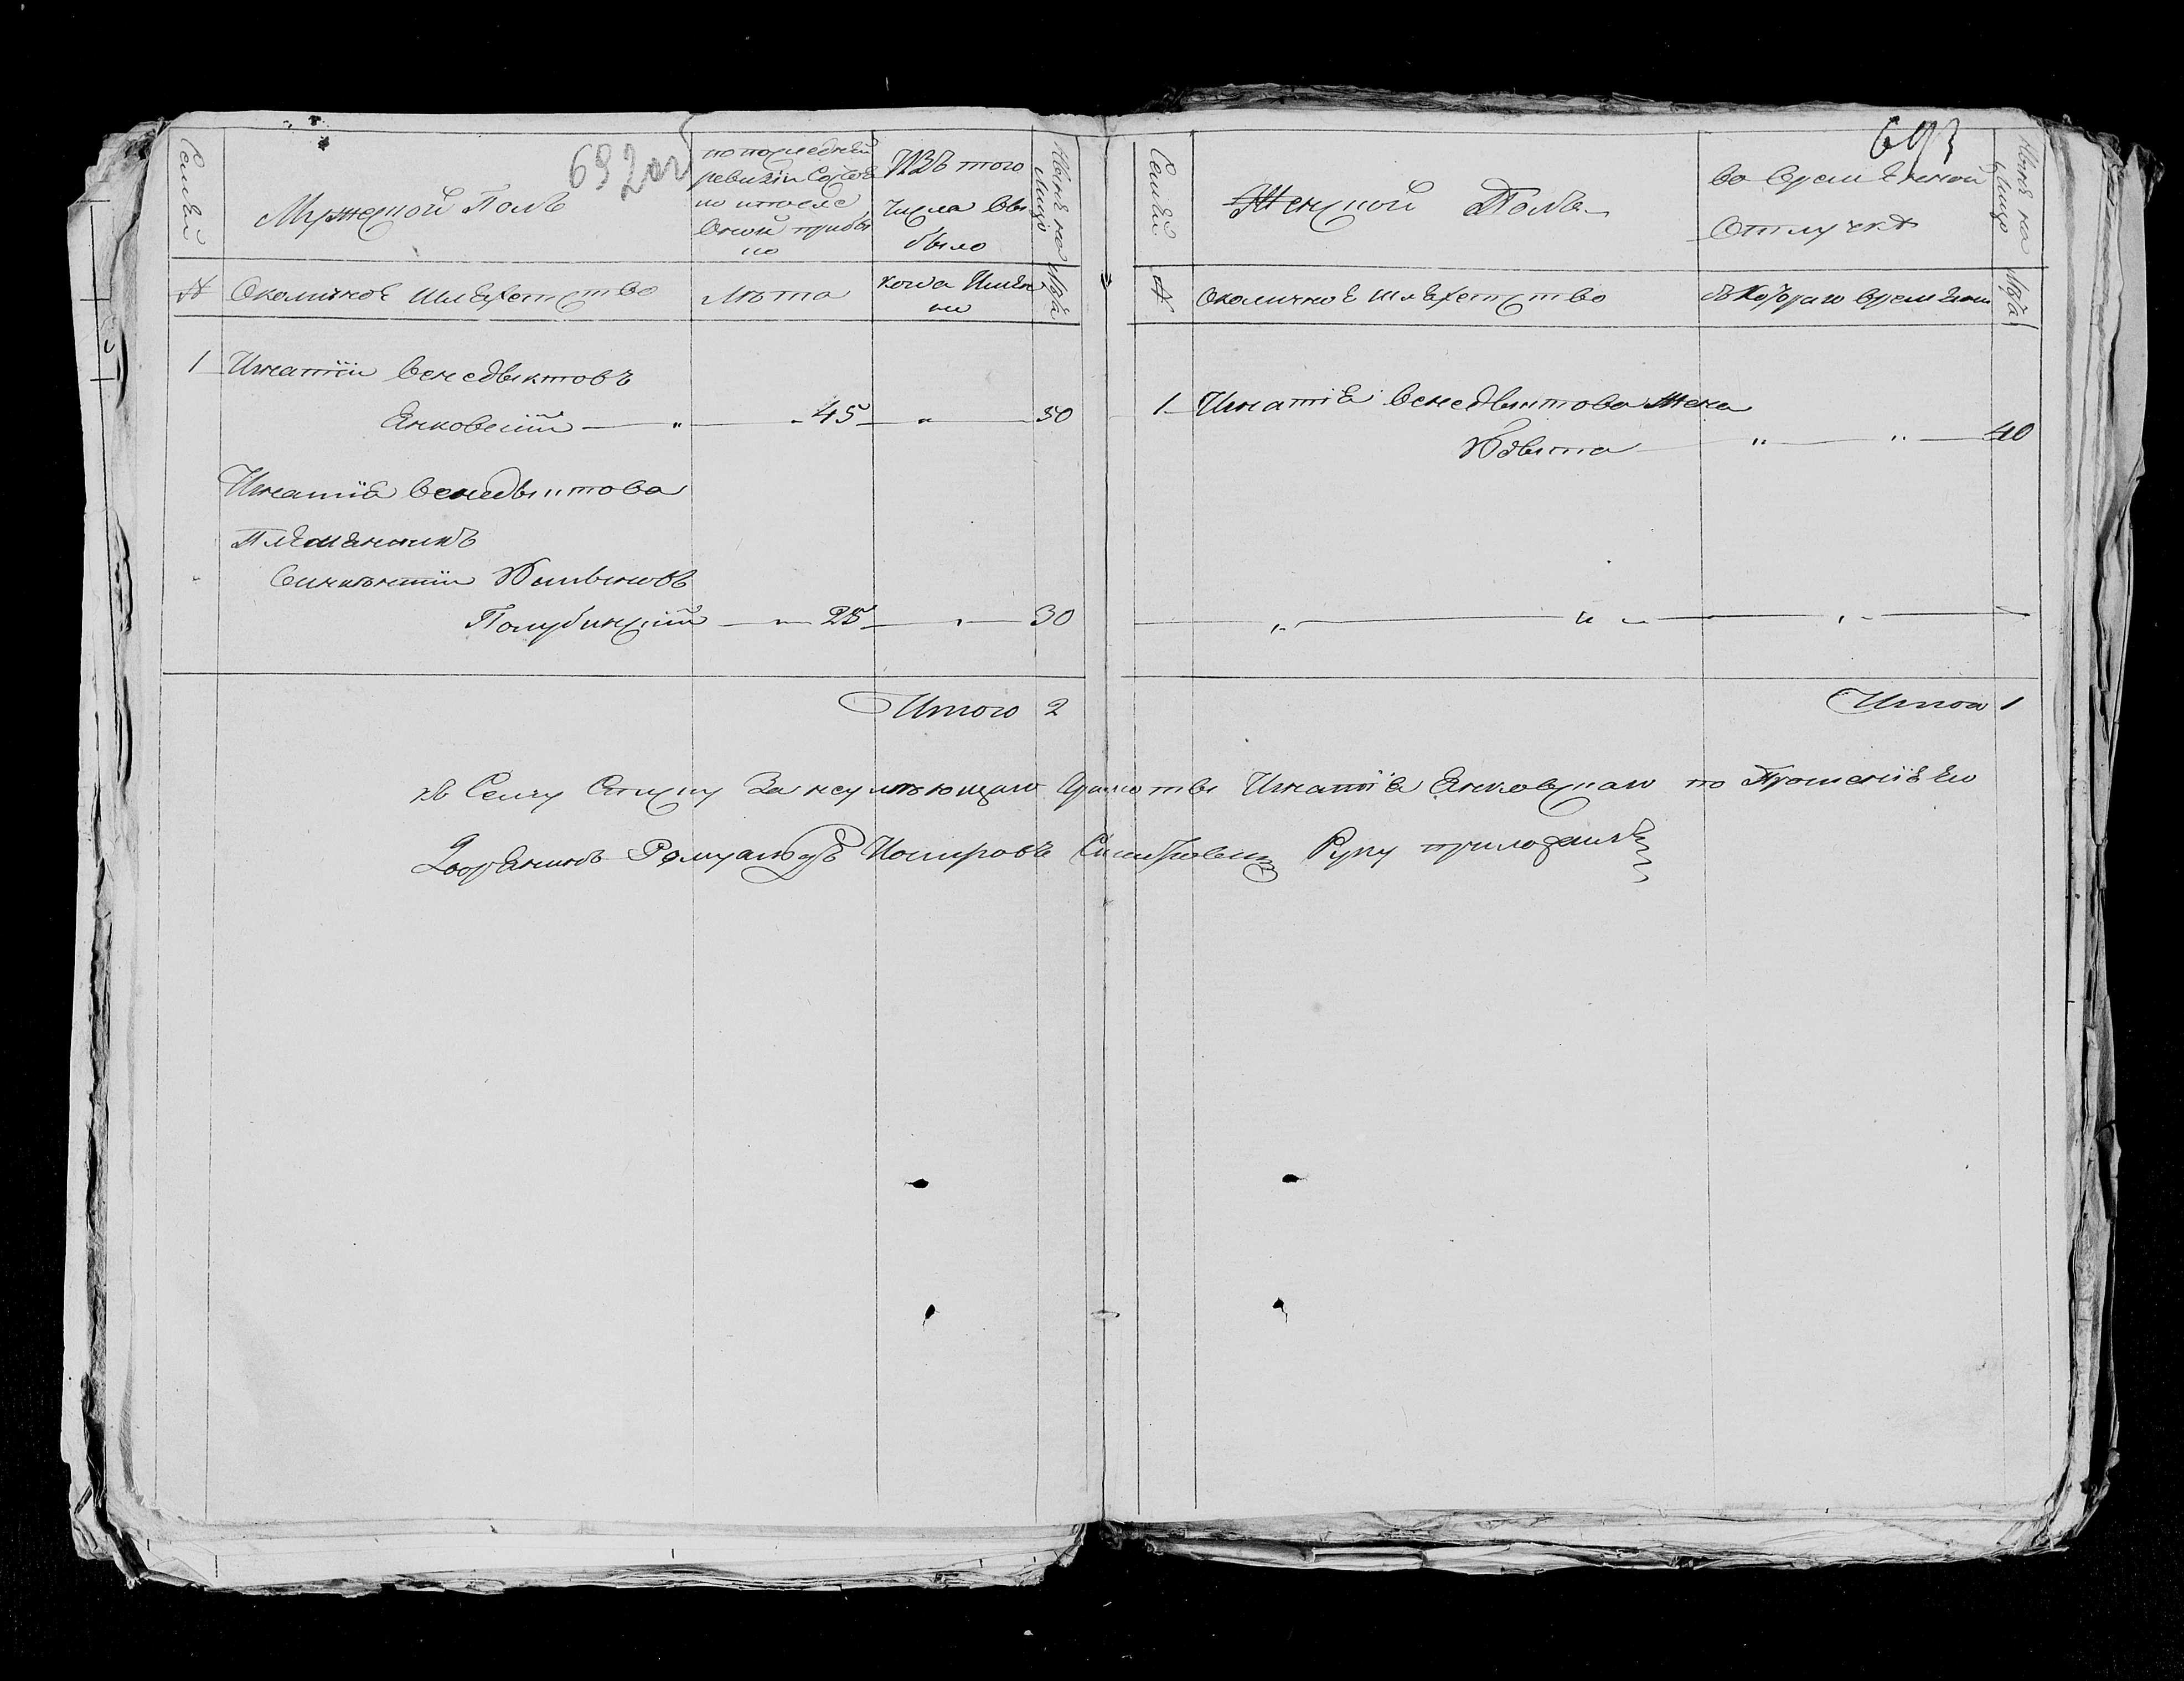 692об
Семьи
Мужеской Полъ
по последней
ревизіи Состоя
ло и после
Оной прибы
ло
ИЗЪ того
числа Вы
было
Ныне на
Лицо
№
Околичное Шляхетство
Лѣта
когда Имян
но
Лѣта
1 Игнатій Венедыктовъ
Янковскій — „ — 45 — „ — 50
Игнатія Венедыктова
Племянникъ
Винцентій
Полубинскій — „ — 25 — „ — 30
Итого 2
693
Семьи
Женской Полъ
во Временной
Отлучкѣ
Ныне на
Лицо
№
Околичное Шляхетство
съ Котораго времяни
Лѣта
1 Игнатія Венедыктова Жена
„ „ 40
„ „ „
Итого 1
къ Сему Списку За неумѣющаго Грамоты Игнатія Янковскаго по Прошенію Его
Дворянинъ Ромуальдъ Руку приложилъ